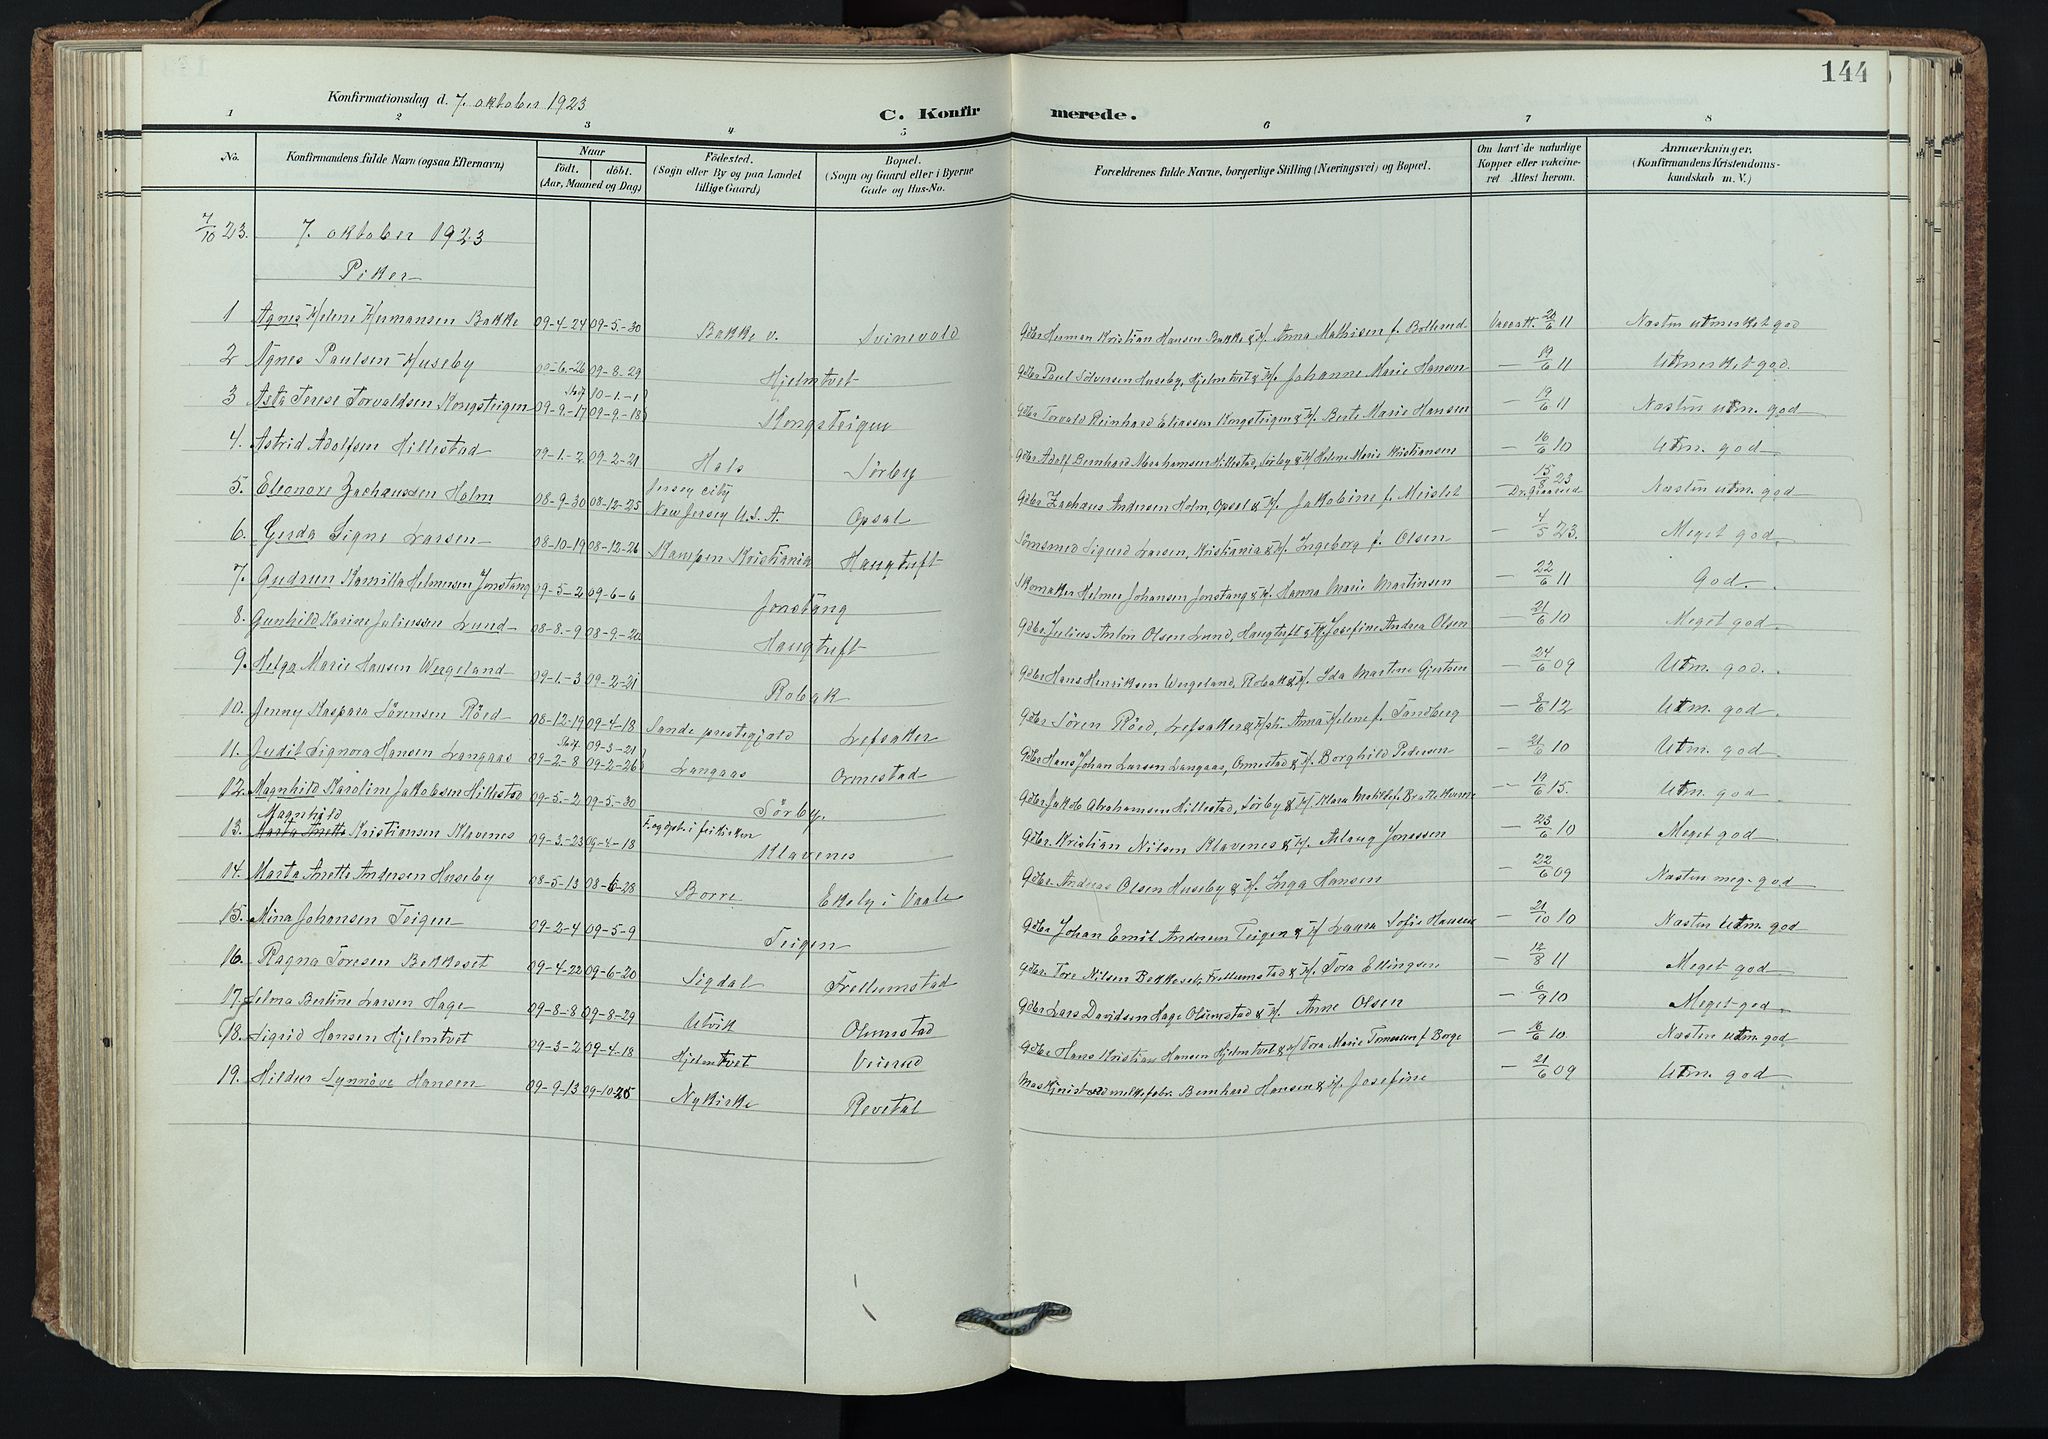 144
Konfirmationsdag d. 7. oktober 1923
C. Konfirmerede.
1 2 3 4 5 6 7 8
No. Konfirmandens fulde Navn (ogsaa Efternavn) Naar født. døbt. (Aar, Maaned og Dag) Fødested. (Sogn eller By og paa Landet tillige Gaard) Bopæl. (Sogn og Gaard eller i Byerne Gade og Hus-No. Forældrenes fulde Navne, borgerlige Stilling (Næringsvei) og Bopæl. Om havt de naturlige Kopper eller vakcineret Attest herom. Anmærkninger, (Konfirmandens Kristendomskundskab m. V.)
7/10 23. 7. oktober 1923
Piker
1 Agnes Helene Hermansen Bakke 09-4-24 09-5-30 Bakke v. Svinevold Gdbr Herman Kristian Hansen Bakke & H. Anna Mathisen f. Bollerud 20/6 11 Næsten utmerket god
2 Agnes Paulsen Huseby 09-6-26 09-8-29 Hjelmtvet Gdbr Paul Sölversen Huseby, Hjelmtvet & H. Johanne Marie Hansen — 19/6 11 Utmerket god.
3 Asta Terese Torvaldsen Kongsteigen 09-9-17 10-1-1 09-9-18 Kongsteigen Gdbr Torvald Reinhard Eliassen Kongsteigen & H. Berte Marie Hansen — 19/6 11 Næsten utm. god
4. Astrid Adolfsen Hillestad 09-1-2 09-2-21 Hals Sörby Gdbr Adolf Bernhard Abrahamsen Hillestad, Sörby & H. Helene Marie Kristiansen — 16/6 10 Utm. god
5. Eleonore Zachaussen Holm 08-9-30 08-12-25 Jersey City New Jersey U.S.A. Opsal Gdbr Zachaus Andersen Holm, Opsal & H. Jakobine f. Meislet 15/8 23 Næsten utm. god
6. Gerda Signe Larsen 08-10-19 08-12-26 Kampen Kristiania Haugtuft Tömsmed Sigurd Larsen, Kristiania & H. Ingeborg f. Olsen — 4/5 23. Meget god.
7. Gudrun Kamilla Helmersen Jonstang 09-5-2 09-6-6 Jonstang Skomaker Helmer Johansen Jonstang & H. Hanna Marie Martinsen — 22/6 11 God.
8. Gunhild Karine Juliussen Lund 08-8-9 08-9-20 Haugtuft Gdbr Julius Anton Olsen Lund, Haugtuft & H. Josefine Andrea Olsen — 21/6 10 Meget god.
9. Helga Marie Hansen Wergeland 09-1-3 09-2-21 Robak Gdbr Hans Henriksen Wergeland, Robak & H. Ida Martine Gjertsen — 24/6 09 Utm. god.
10. Jenny Kaspara Sörensen Röed 08-12-19 09-4-18 Sande prestegjæld Lefsaker Gdbr Sören Röed, Lefsaker & H. Anna Helene f. Sandberg — 8/6 12 Utm. god.
11. Judit Signora Hansen Langaas 09-2-8 09-3-21 09-2-26 Langaas Ormestad Gdbr Hans Johan Larsen Langaas, Ormestad & H. Borghild Pedersen — 21/6 10 Utm. god
12. Magnhild Karoline Jakobsen Hillestad 09-5-2 09-5-30 Sörby. Gdbr Jakob Abrahamsen Hillestad, Sörby & H. Klara Matilde — 19/6 15. Utm. god
13. Magnhild Kristiansen Klavenes 09-3-23 09-4-18 F. og döpt i frikirken Klavenes Gdbr. Kristian Nilsen Klavenes & H. Aslaug Jonassen — 23/6 10 Meget god
14. Marta Anette Andersen Huseby 08-5-13 08-6-28 Borre Ekely i Vaale Gdbr. Andreas Olsen Huseby & H. Inga Hansen — 22/6 09 Næsten meg. god
15. Mina Johansen Teigen 09-2-4 09-5-9 Teigen Gdbr Johan Emil Andersen Teigen & H. Laura Sofie Hansen — 21/10 10 Næsten utm. god
16. Ragna Toresen Bekkeset 09-4-22 09-6-20 Sigdal Frellumstad Gdbr Tore Nilsen Bekkeset, Frellumstad & H. Tora Ellingsen — 12/8 11 Meget god
17. Selma Bertine Larsen Hage 09-8-8 09-8-29 Ulvik Olumstad Gdbr Lars Davidsen Hage Olumstad & H. Anne Olsen — 6/9 10 Meget god.
18. Sigrid Hansen Hjelmtvet 09-3-2 09-4-18 Hjelmtvet Veiersed Gdbr Hans Kristian Hansen Hjelmtvet & H Tora Marie Tomessen f Borge — 16/6 10 Næsten utm. god
19. Hildur Synnöve Hansen 09-9-13 09-10-25 Nykirke Revetal Maskinist ved melkefabr. Bernhard Hansen & H. Josefine — 21/6 09 Utm. god